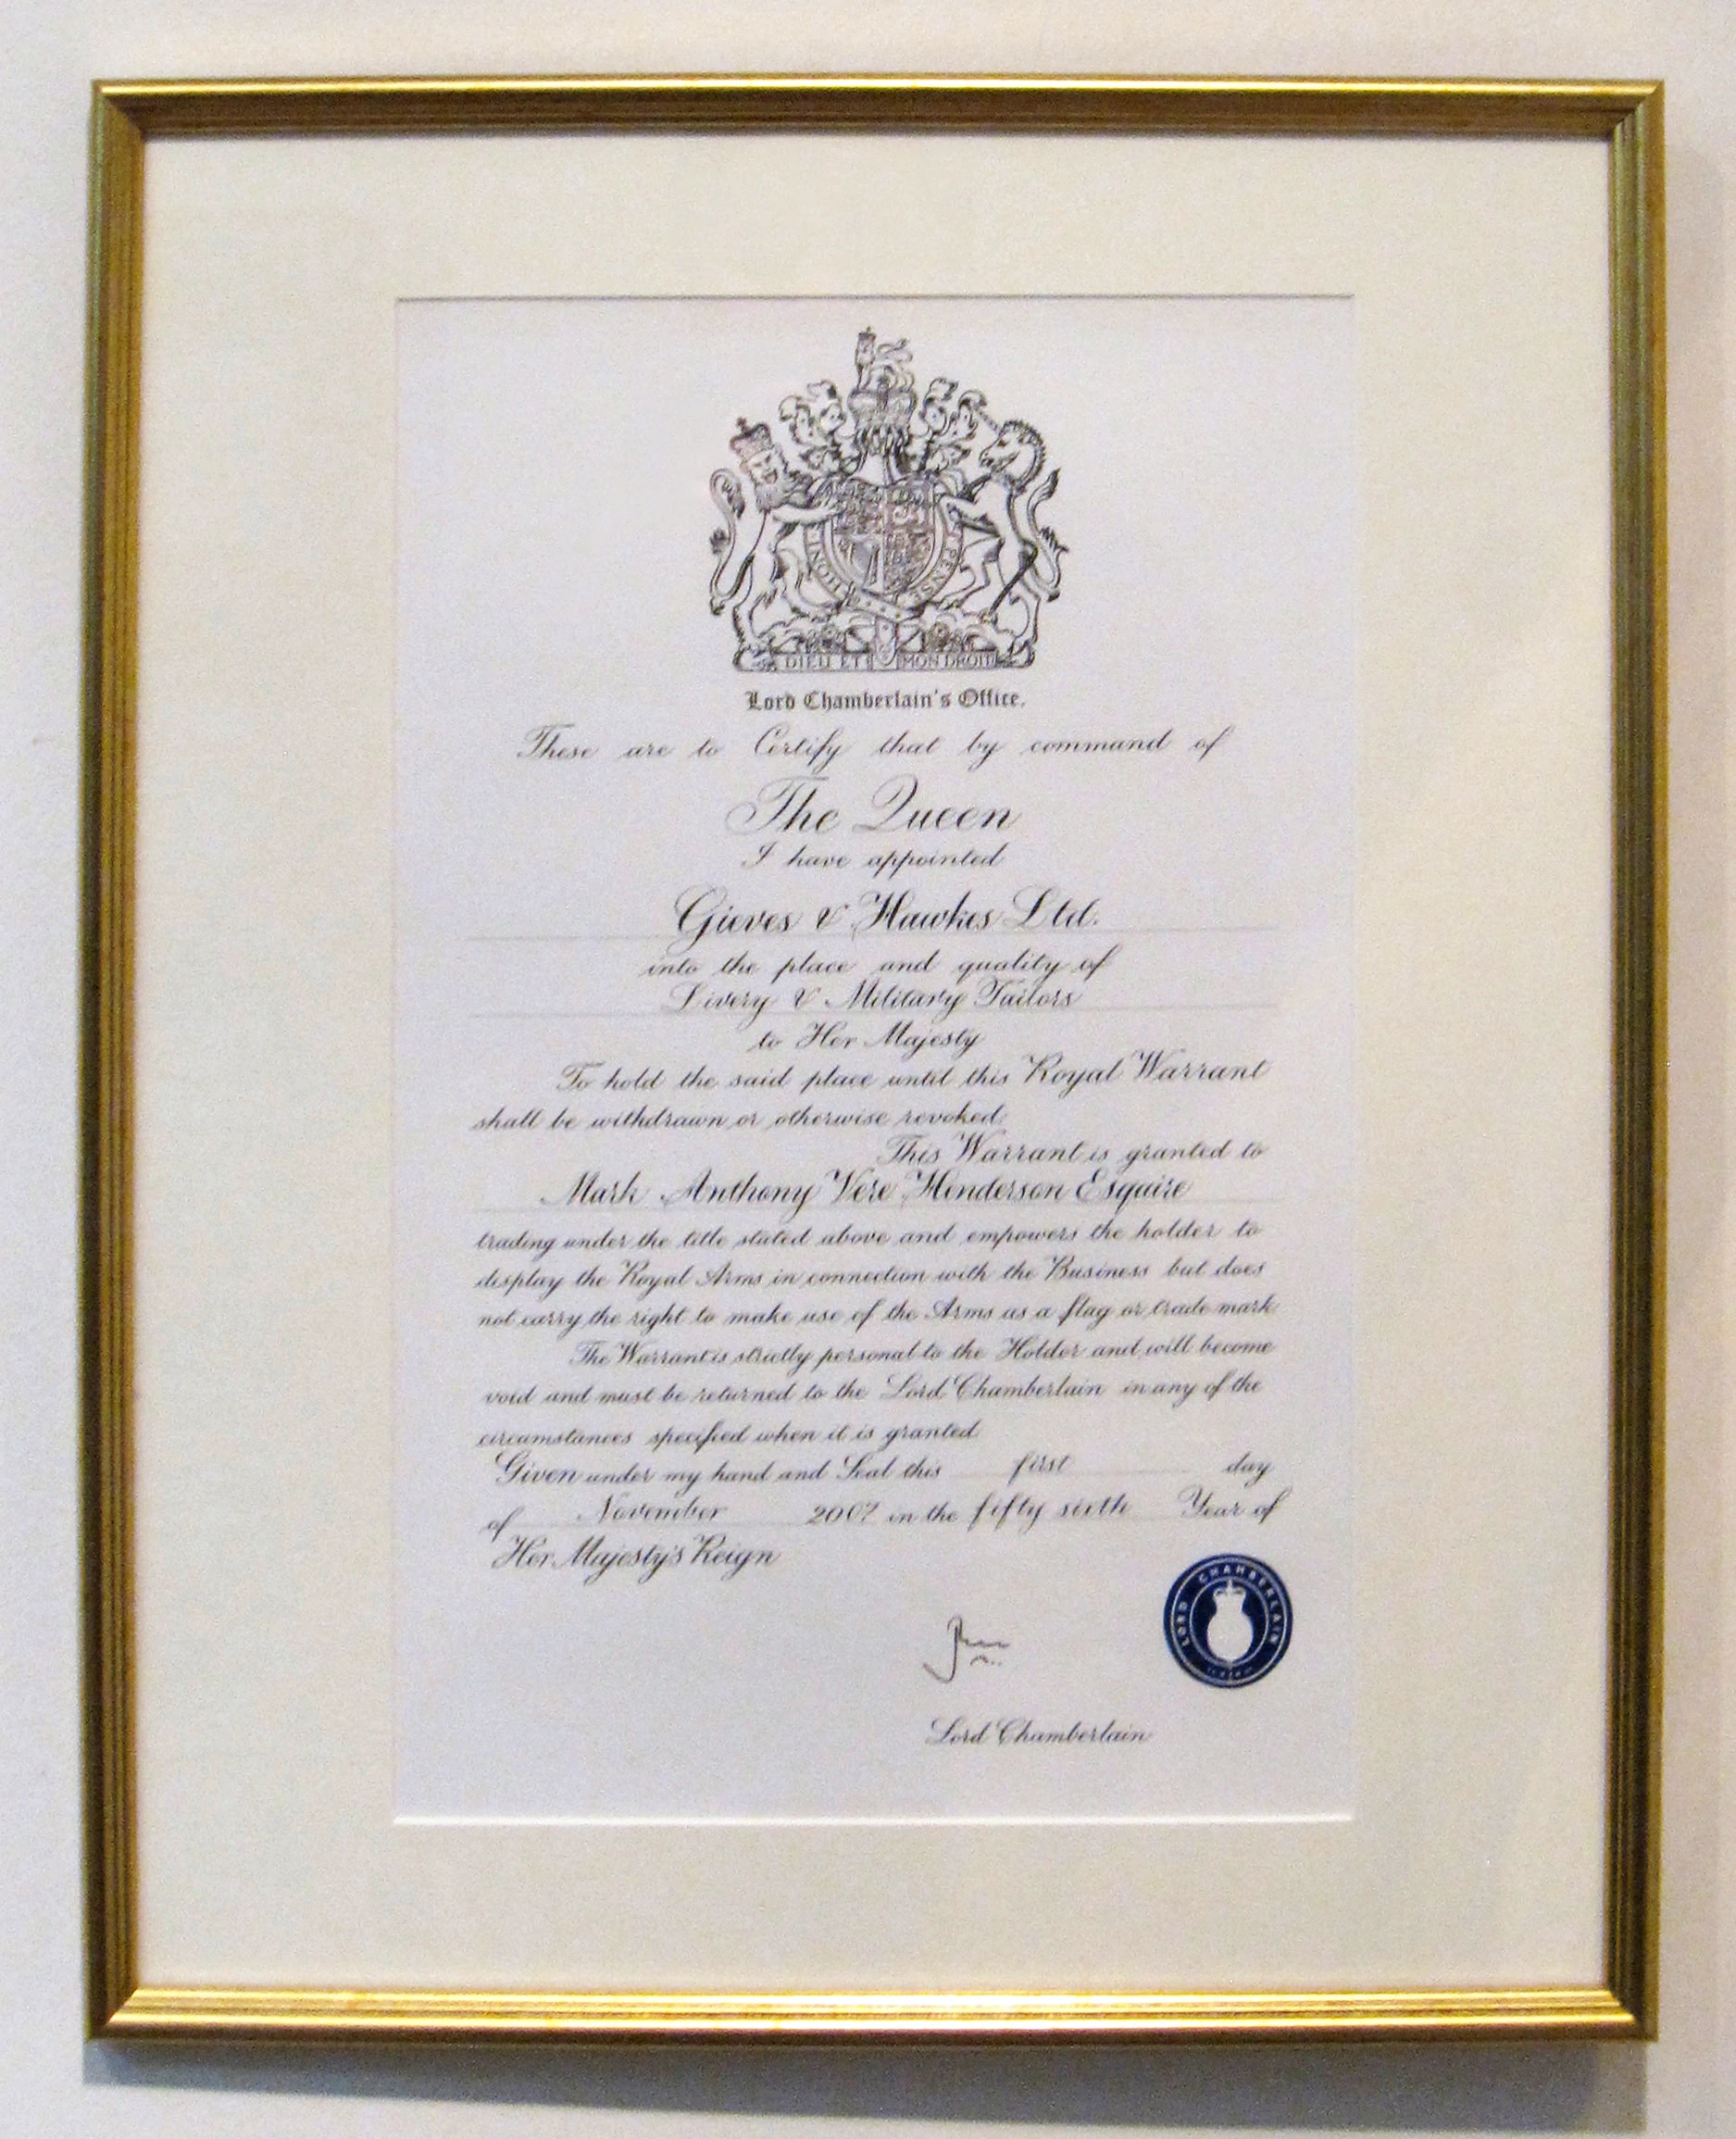 HONI
PENSE
DIEU ET MON DROIT
Lord Chamberlain's Office.
These are to Certify that by command of
The Queen
I have appointed
Gieves & Hawkes Ltd.
into the place and quality of
Livery & Military Tailors
to Her Majesty
To hold the said place until this Royal Warrant
shall be withdrawn or otherwise revoked.
This Warrant is granted to
Mark Anthony Vere Henderson Esquire
trading under the title stated above and empowers the holder to
display the Royal Arms in connection with the Business but does
not carry the right to make use of the Arms as a flag or trade mark
The Warrant is strictly personal to the Holder and will become
void and must be returned to the Lord Chamberlain in any of the
circumstances specified when it is granted.
Given under my hand and Seal this first day
of November 2007 in the fifty sixth Year of
Her Majesty's Reign
LORD CHAMBERLAIN
Lord Chamberlain